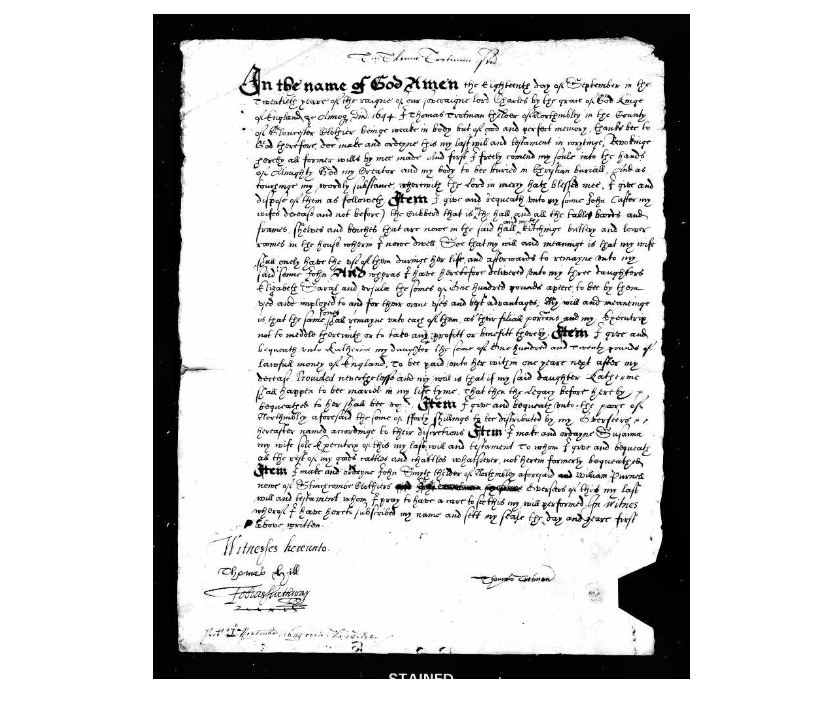 In the name of God Amen the Eighteenth day of September in the
Twentieth yeare of the raigne of our soveraigne lord Charles by the grace of God Kinge
of England &c Annoq dni 1644 I Thomas Trotman thelder of Northnibley in the County
of Gloucester Clothier beinge weake in body but of good and perfect memory, thankes bee to
God therefore, doe make and ordeyne this my last will and testament in wrytinge, Revokinge
hereby all former wills by mee made And first I freely comend my soule into the hands
of Almighty God my Creator and my body to bee buried in Christian buriall And as
touchinge my wordly substance, wherewith the Lord in mercy hath blessed mee, I give and
dispose of them as followeth Item I give and bequeath unto my sonne John (after my
wifes decease and not before) the Cubbord that is in the hall and all the table bords and
frames, shelves and benches that are nowe in the said hall, kitchinge buttery and lower
roomes in the house wherein I nowe dwell Soe that my will and meaninge is that my wife
shall onely have the use of them duringe her life, and afterwards to remayne unto my
said sonne John And wheras I have heretofore delivered unto my three daughters
Elizabeth Sarah and Ursula the somes of One hundred pounds apiece to bee by them
used and imployed to and for their owne uses and best advantages, My will and meaninge
is that the same somes shall remayne unto each of them, as their filiall porcions and my Executrix
not to meddle therewith or to take any profitt or benefitt thereby. Item I give and
bequeath unto Katherine my daughter the some of One hundred and Twenty pounds of
lawfull money of England, To bee paid unto her within one yeare next after my
decease Provided neverthelesse and my will is that if my said daughter Katherine
shall happen to bee maried in my life tyme, that then the Legacy before hereby
bequeathed to her shall bee voyd. Item I give and bequeath unto the poore of
Northnibley aforesaid the some of fforty shillings to bee distributed by my Overseers
hereafter named accordinge to their discretions Item I make and ordeyne Susanna
my wife sole Executrix of this my last will and testament To whom I give and bequeath
all the rest of my goods cattles and chattles whatsoever, not herein formerly bequeathed,
Item I make and ordeyne John Smyth thelder of Northnibley aforesaid and William Purnell
nowe of Stinchcombe Clothiers Overseers of this my last
will and testament whom I pray to have a care to see this my will performed, In witnes
wherof I have hereto subscribed my name and sett my seale the day and yeare first
above written.
Witnesses hereunto.
Thomas Hill
Thomas Trotman